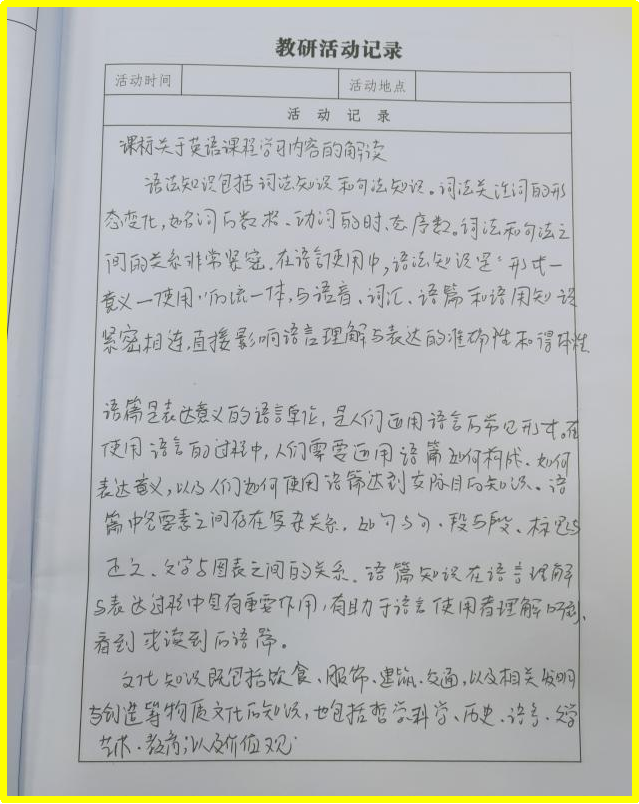 教研活动记录
活动时间 活动地点
活动记录
课标关于英语课程学习内容的解读
语法知识包括词法知识和句法知识。词法关注词的形
态变化，如名词的数、格、动词的时、态序数。词法和句法之
间的关系非常紧密，在语言使用中，语法知识是“形式一
意义一使用”的统一体，与语音、词汇、语篇和语用知识
紧密相连，直接影响语言理解与表达的准确性和得体性
语篇是表达意义的语言单位，是人们运用语言的常见形式。在
使用语言的过程中，人们需要运用语篇如何构成、如何
表达意义，以及人们如何使用语篇达到交际目的知识、语
篇中各要素之间存在复杂关系，如句与句、段与段、标题与
正文、文字与图表之间的关系、语篇知识在语言理解
与表达过程中具有重要作用，有助于语言使用者理解听到、
看到或读到的语篇。
文化知识既包括饮食、服饰、建筑、交通，以及相关发明
与创造等物质文化的知识，也包括哲学科学、历史、语言、文学
艺术、教育；以及价值观